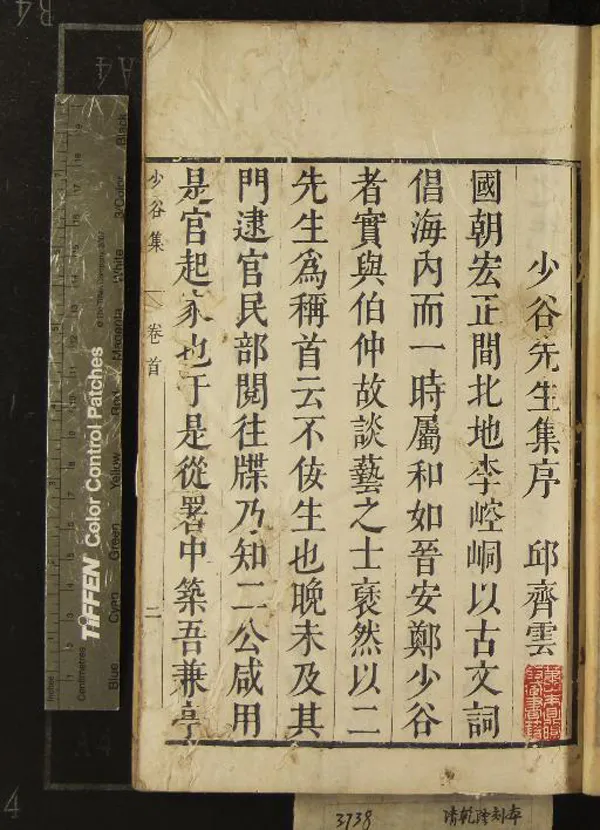 少谷先生集序 邱齊雲
國朝宏正間北地李崆峒以古文詞
倡海內而一時屬和如晉安鄭少谷
者實與伯仲故談藝之士裦然以二
先生為稱首云不佞生也晚未及其
門逮官民部閱往牒乃知二公咸用
是官起家也于是從署中築吾兼亭
少谷集 卷首 二
TIFFEN Color Control Patches
© The Tiffen Company, 2007
Inches
Centimetres
Blue
Cyan
Green
Yellow
Red
Magenta
White
3/Color
Black
3738 清乾隆刻本
R4
A4
4